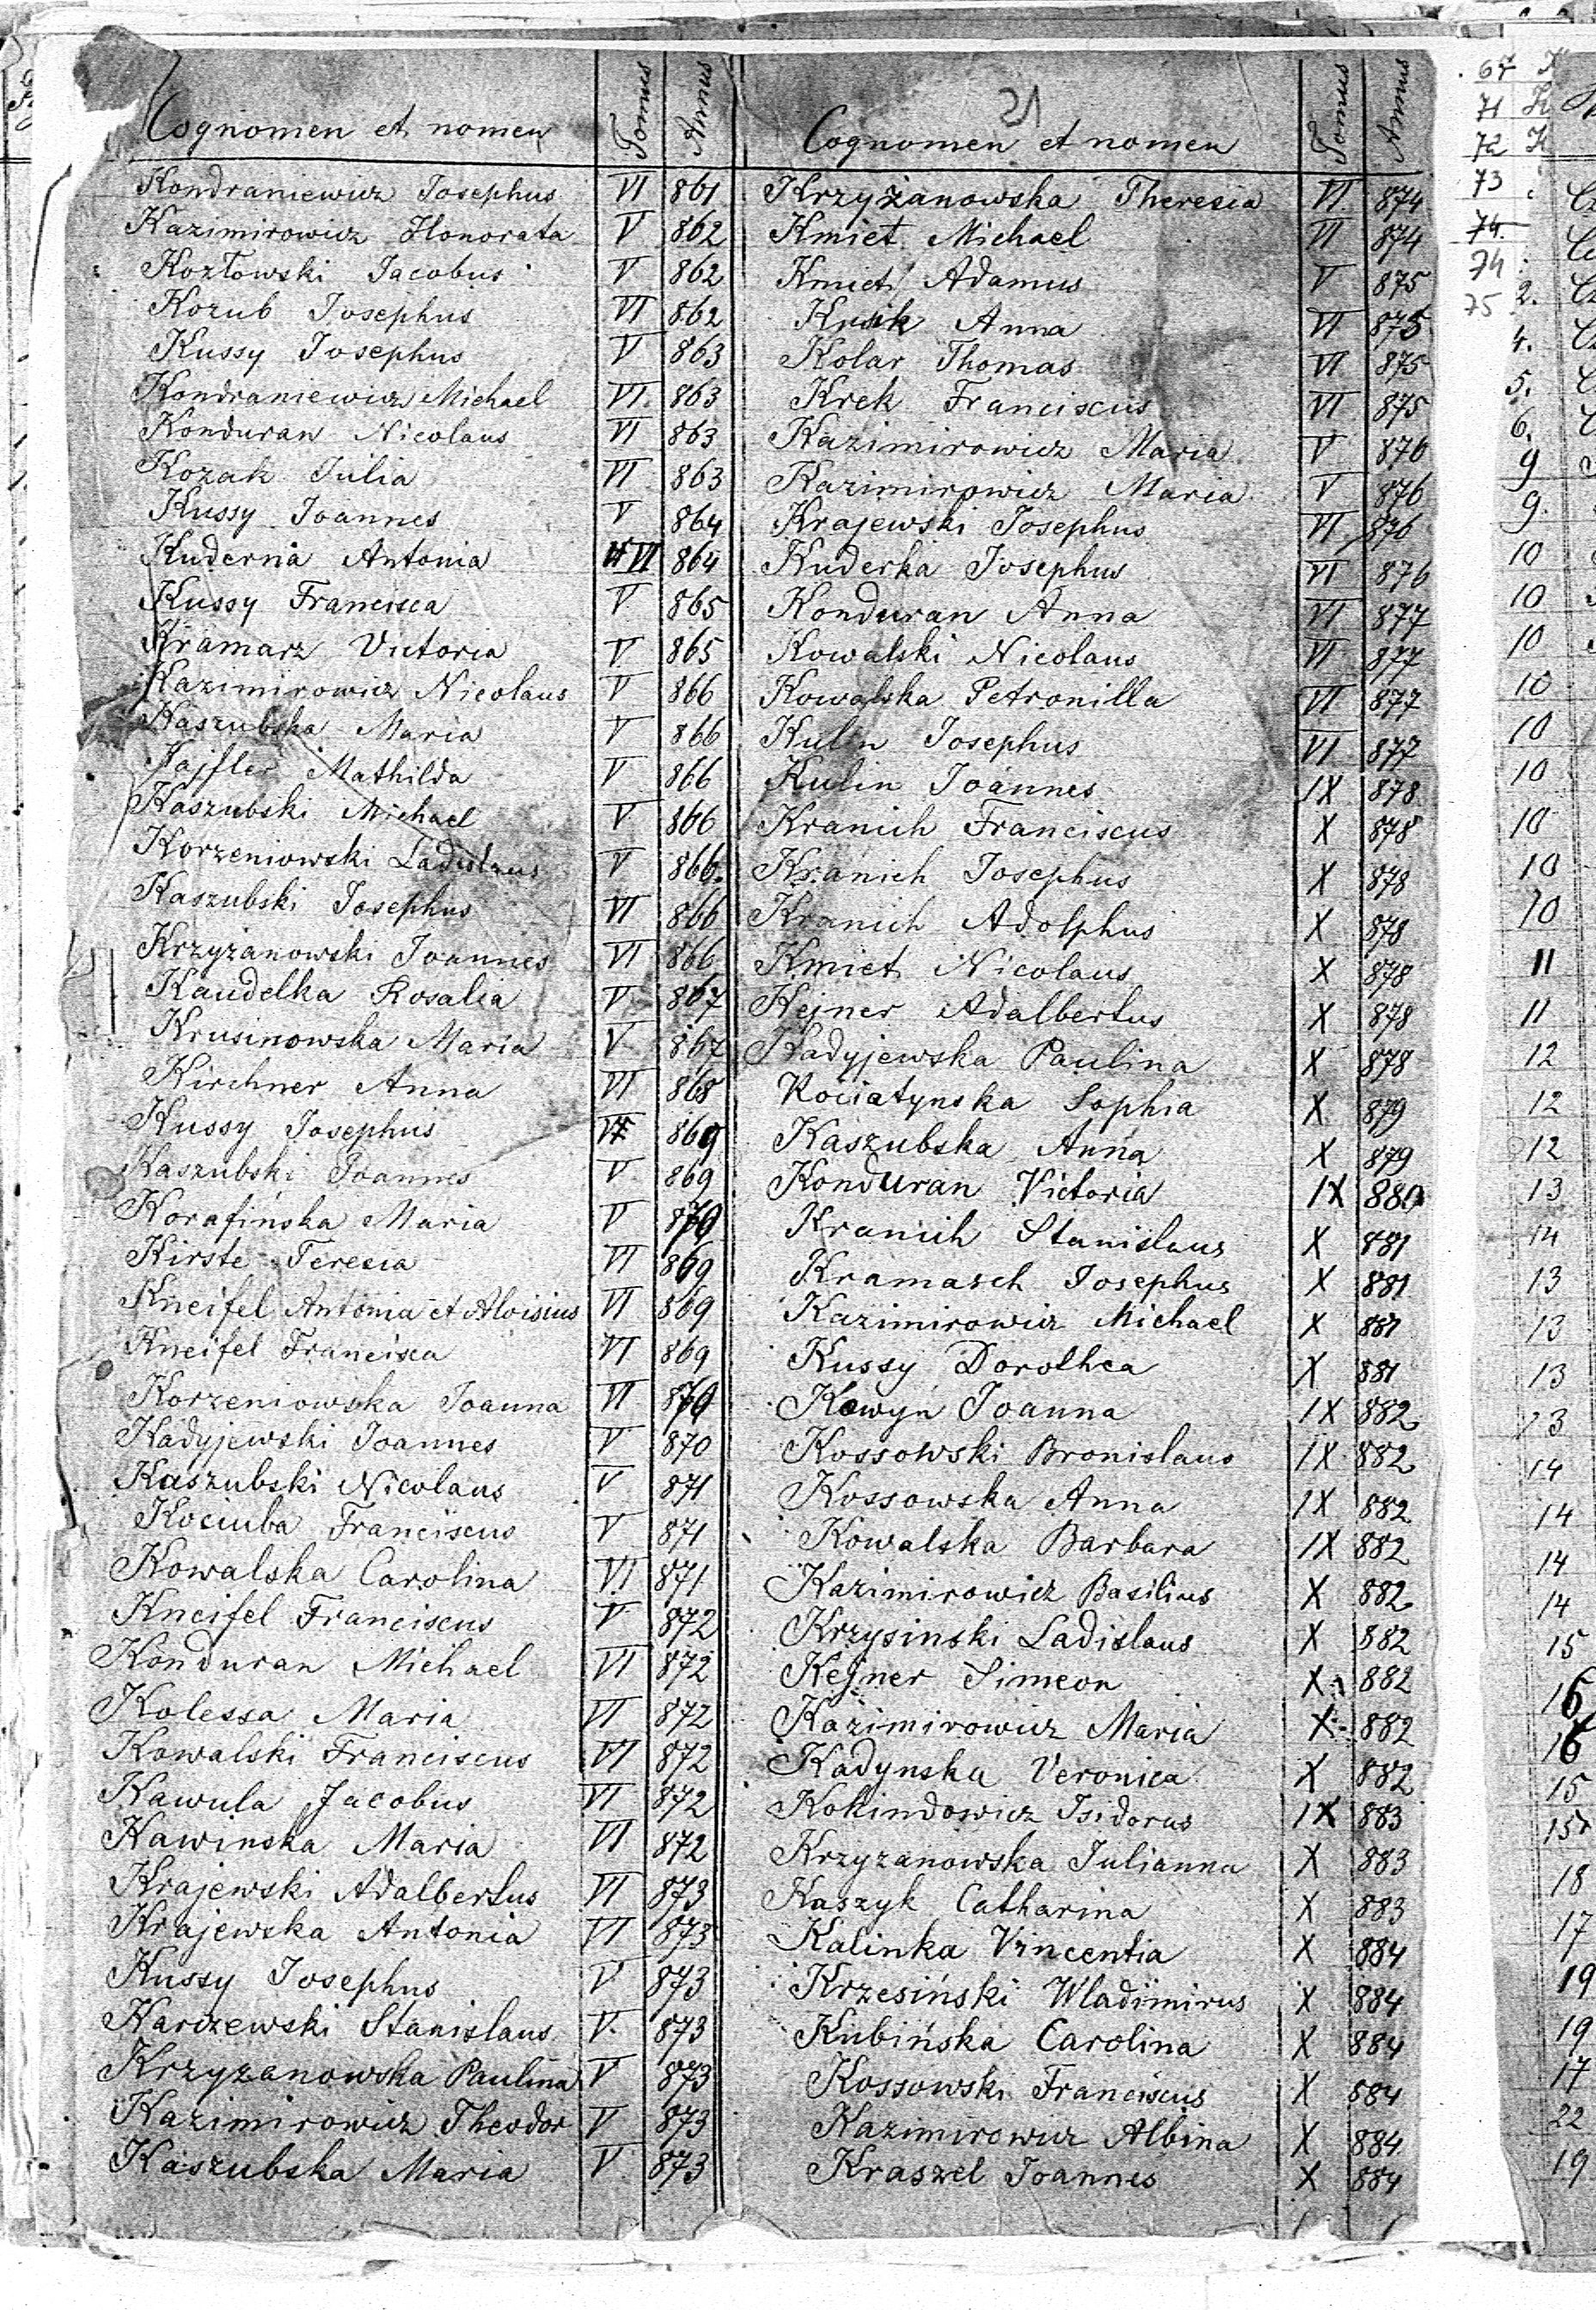 21
Cognomen et nomen Tomus Annus
Kondraniewicz Josephus VI 861
Kazimirowicz Honorata V 862
Kozłowski Jacobus V 862
Kozub Josephus VI 862
Kussy Josephus V 863
Kondraniewicz Michael VI 863
Konduran Nicolaus VI 863
Kozak Julia VI 863
Kussy Joannes V 864
Kuderna Antonia VI 864
Kussy Francisca V 865
Kramarz Victoria V 865
Kazimirowicz Nicolaus V 866
Kaszubska Maria V 866
Fajfler Mathilda V 866
Kaszubski Michael V 866
Korzeniowski Ladislaus V 866.
Kaszubski Josephus VI 866
Krzyżanowski Joannes VI 866
Kaudelka Rosalia V 867
Krusinowska Maria V 867
Kirchner Anna VI 868
Kussy Josephus 869
Kaszubski Joannes V 869
Korafińska Maria V
Kirste Teresia VI 869
Kneifel Antonia et Aloisius VI 869
Kneifel Francisca VI 869
Korzeniowska Joanna VI 870
Kadyjewski Joannes V 870
Kaszubski Nicolaus V 871
Kociuba Franciscus V 871
Kowalska Carolina VI 871
Kneifel Franciscus V 872
Konduran Michael VI 872
Kolessa Maria VI 872
Kowalski Franciscus VI 872
Kawula Jacobus VI 872
Kawinska Maria VI 872
Krajewski Adalbertus VI 873
Krajewska Antonia VI 873
Kussy Josephus V 873
Karczewski Stanislaus V. 873
Krzyzanowska Paulina V 873
Kazimirowicz Theodor V 873
Kaszubska Maria V 873
Cognomen et nomen Tomus Annus
Krzyżanowska Theresia VI 874
Kmiet Michael VI 874
Kmiet Adamus V 875
Kusik Anna VI 875
Kolar Thomas VI 875
Krek Franciscus VI 875
Kazimirowicz Maria V 876
Kazimirowicz Maria V 876
Krajewski Josephus VI 876
Kuderka Josephus VI 876
Konduran Anna VI 877
Kowalski Nicolaus VI 877
Kowalska Petronilla VI 877
Kulin Josephus VI 877
Kulin Joannes IX 878
Kranich Franciscus X 878
Kranich Josephus X 878
Kranich Adolphus X 878
Kmiet Nicolaus X 878
Kejner Adalbertus X 878
Kadyjewska Paulina X 878
Kociatynska Sophia X 879
Kaszubska Anna X 879
Konduran Victoria IX 880
Kranich Stanislaus X 881
Kramasch Josephus X 881
Kazimirowicz Michael X 881
Kussy Dorothea X 881
Kowyn Joanna IX 882
Kossowski Bronislaus IX 882
Kossowska Anna IX 882
Kowalska Barbara IX 882
Kazimirowicz Basilius X 882
Krzysinski Ladislaus X 882
Kejner Simeon X 882
Kazimirowicz Maria X 882
Kadynska Veronica X 882
Kokindowicz Isidorus IX 883
Krzyzanowska Julianna X 883
Kaszyk Catharina X 883
Kalinka Vincentia X 884
Krzesiński Wladimirus X 884
Kubińska Carolina X 884
Kossowski Franciscus X 884
Kazimirowicz Albina X 884
Kraszel Joannes X 884
67
71
72
73
74.
74
75 2.
4.
5.
6.
9
9.
10
10
10
10
10
10
10
10
10
11
11
12
12
12
13
14
13
13
13
13
14
14
14
14
15
16
16
15
15
18
17
19
19
17
22
19